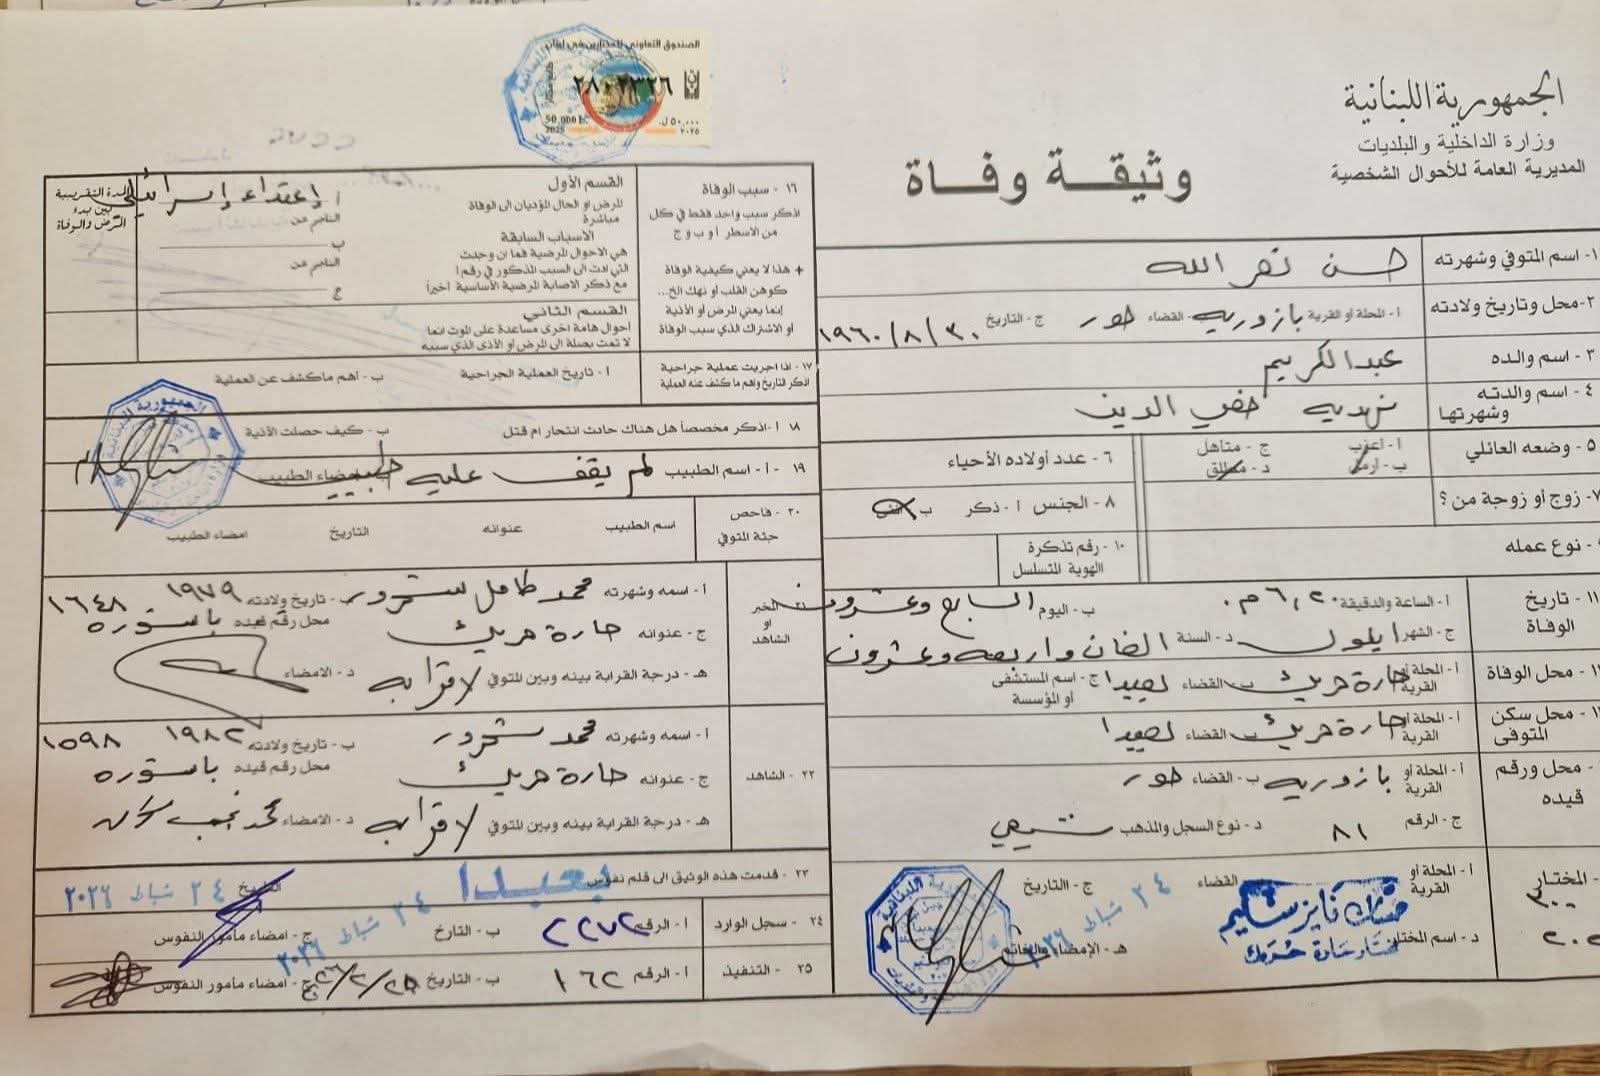 الجمهورية اللبنانية
وزارة الداخلية والبلديات
المديرية العامة للأحوال الشخصية
وثيقة وفاة
الصندوق التعاوني للمختارين في لبنان
٢٨٠٢٣٣٦
50,000 L.L
٥٠,٠٠٠ ل.ل
2025
٢٠٢٥
١- اسم المتوفي وشهرته
حسن نصر الله
٢- محل وتاريخ ولادته
أ- المحلة أو القرية بازوريه ب- القضاء صور ج- التاريخ ١٩٦٠/٨/٣٠
٣- اسم والده
عبد الكريم
٤- اسم والدته وشهرتها
نهديه صفي الدين
٥- وضعه العائلي
أ- اعزب ج- متأهل
ب- أرمل د- مطلق
٦- عدد أولاده الأحياء
٧- زوج أو زوجة من؟
٨- الجنس أ- ذكر ب- انثى
- نوع عمله
١٠- رقم تذكرة الهوية المتسلسل
١١- تاريخ الوفاة
أ- الساعة والدقيقة ٦,٢٠ م. ب- اليوم السابع وعشرون
ج- الشهر ايلول د- السنة الفان واربعة وعشرون
- محل الوفاة
أ- المحلة أو القرية حارة حريك ب- القضاء بعبدا ج- اسم المستشفى أو المؤسسة
- محل سكن المتوفى
أ- المحلة أو القرية حارة حريك ب- القضاء بعبدا
- محل ورقم قيده
أ- المحلة أو القرية بازوريه ب- القضاء صور
ج- الرقم ٨١ د- نوع السجل والمذهب شيعي
- المختار
أ- المحلة أو القرية القضاء ج- التاريخ ٢٤ شباط ٢٠٢٦
د- اسم المختار هـ- الإمضاء والخاتم
مختار حارة حريك
١٦- سبب الوفاة
اذكر سبب واحد فقط في كل من الاسطر أ و ب و ج
+ هذا لا يعني كيفية الوفاة
كوهن القلب أو نهك الخ...
إنما يعني المرض أو الأذية
أو الاشتراك الذي سبب الوفاة
القسم الأول
المرض أو الحال المؤديان الى الوفاة مباشرة
الاسباب السابقة
هي الاحوال المرضية فيما ان وجدت
التي ادت الى السبب المذكور في رقم أ
مع ذكر الاصابة المرضية الأساسية أخيراً
أ إعتداء إسرائيلي
الناجم عن
ب
الناجم عن
ج
المدة التقريبية بين بدء المرض والوفاة
القسم الثاني
احوال هامة اخرى مساعدة على الموت انما
لا تمت بصلة الى المرض أو الأذى الذي سببه
١٧- اذا اجريت عملية جراحية اذكر التاريخ واهم ما كشف عنه العملية
أ- تاريخ العملية الجراحية ب- اهم ما كشف عن العملية
١٨ أ- اذكر مخصصاً هل هناك حادث انتحار ام قتل ب- كيف حصلت الأذية
١٩ - أ- اسم الطبيب لم يقف عليه طبيب ب- امضاء الطبيب
٢٠- فاحص جثة المتوفي
اسم الطبيب عنوانه التاريخ امضاء الطبيب
٢١- المخبر أو الشاهد
أ- اسمه وشهرته محمد كامل شحرور ب- تاريخ ولادته ١٩٧٩ ١٦٤٨
ج- عنوانه حارة حريك محل رقم قيده باشوره
هـ- درجة القرابة بينه وبين المتوفي لا قرابه د- الامضاء
٢٢- الشاهد
أ- اسمه وشهرته محمد شحرور ب- تاريخ ولادته ١٩٨٢ ١٥٩٨
ج- عنوانه حارة حريك محل رقم قيده باشوره
هـ- درجة القرابة بينه وبين المتوفي لا قرابه د- الامضاء
٢٣- قدمت هذه الوثيق الى قلم نفوس بعبدا التاريخ ٢٤ شباط ٢٠٢٦
٢٤- سجل الوارد أ- الرقم ٢٢٧٢ ب- التارخ ٢٤ شباط ٢٠٢٦ ج- امضاء مأمور النفوس
٢٥- التنفيذ أ- الرقم ١٦٢ ب- التاريخ ج- امضاء مأمور النفوس